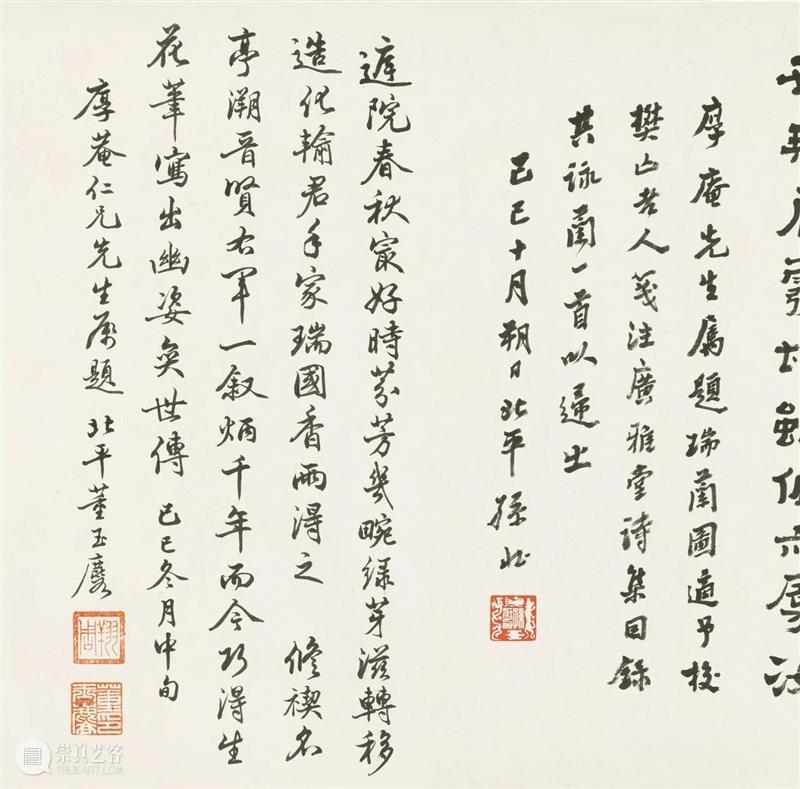 厚庵先生屬題瑞蘭圖適予校
樊山老人箋注廣雅堂詩集因錄
其詠蘭一首以歸之
己巳十月朔日北平孫壯
庭院春秋㝡好時芬芳幾畹綠芽滋轉移
造化輸君手家瑞國香兩得之 脩禊名
亭溯晉賢右軍一敘炳千年而今巧得生
花筆寫出幽姿奕世傳 己巳冬月中旬
厚菴仁兄先生屬題 北平董玉麐
翔周
崇真艺客
TRUEART.COM